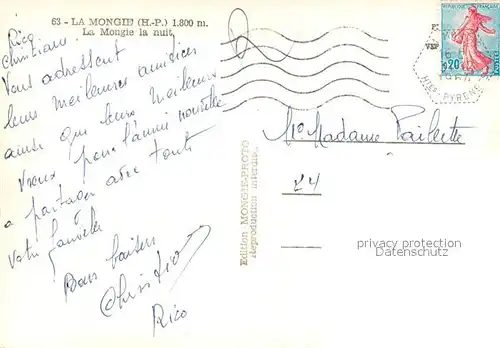 63 - LA MONGIE (H.-P.) 1.800 m.
La Mongie la nuit
Rico
Christiane
Vous adressent
leurs meilleures amitiés
ainsi que leurs meilleurs
vœux pour l'année nouvelle
a partager avec toute
votre famille
Bons baisers
Rico
Edition MONGIE-PHOTO
Reproduction interdite
REPUBLIQUE FRANÇAISE
0,20
POSTES
HTES PYRENE
Mr Madame
privacy protection
watermark